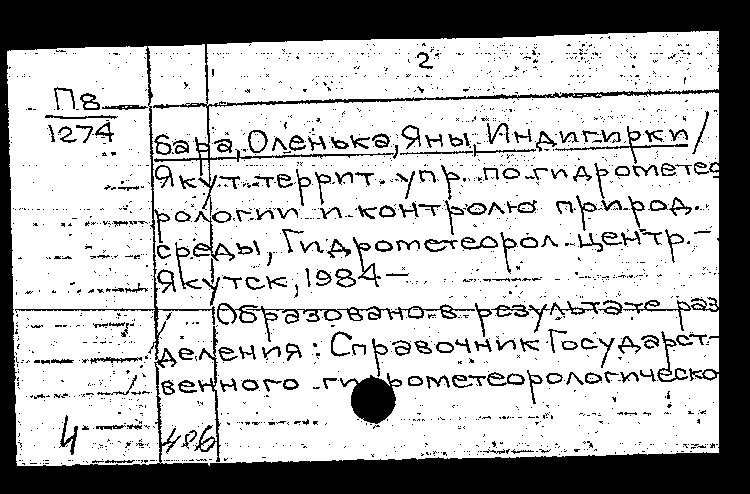 2
П8
1274
бара, Оленька, Яны, Индигирки /
Якут. террит. упр. по гидрометео
рологии и контролю природ.
среды, Гидрометеорол. центр. –
Якутск, 1984 –
Образовано в результате раз
деления: Справочник Государст-
венного гидрометеорологическо
4 486